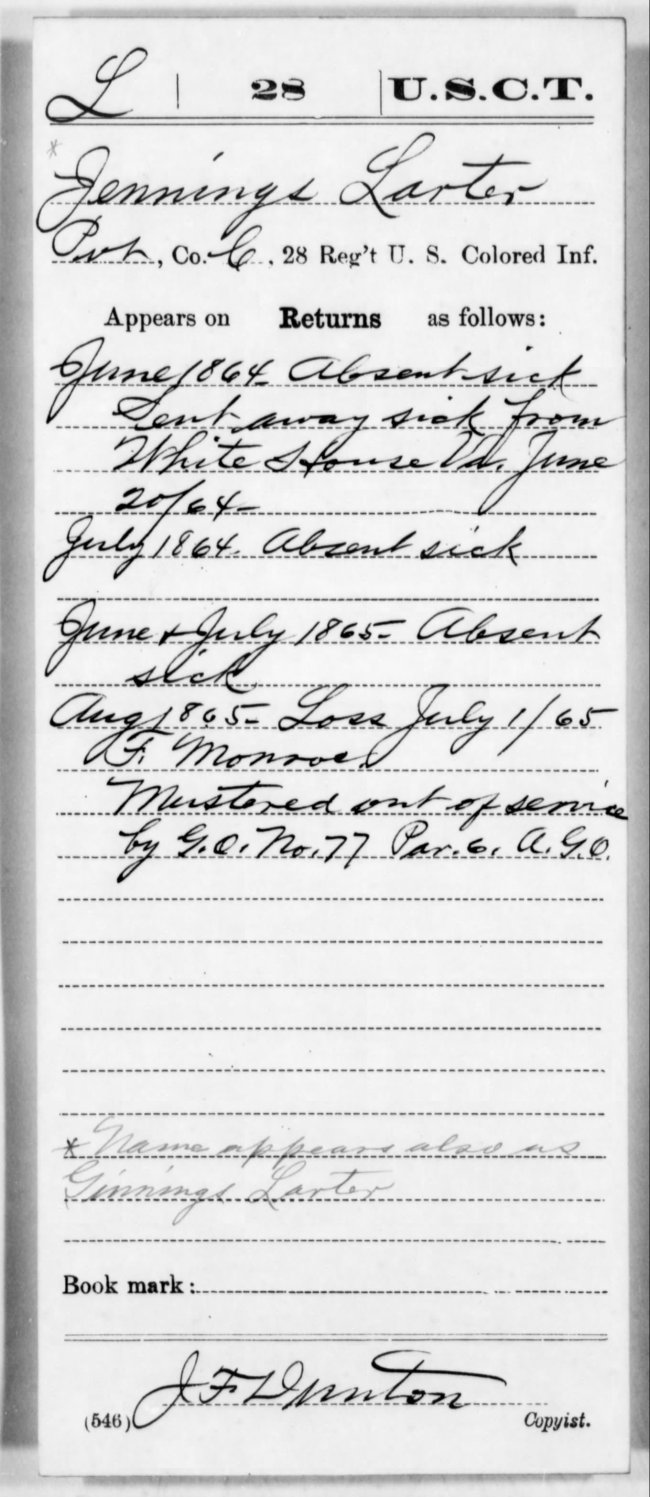 L | 28 | U.S.C.T.
* Jennings Larter
Pvt, Co. C, 28 Reg't U. S. Colored Inf.
Appears on Returns as follows:
June 1864 Absent sick
Sent away sick from
White House Va. June
20/64
July 1864. Absent sick
June & July 1865 - Absent
sick
Aug 1865 - Loss July 1/65
F. Monroe.
Mustered out of service
by G.O. No. 77 Par. 6. A.G.O.
* Name appears also as
Ginnings Larter
Book mark:
J F Dunton
(546) Copyist.